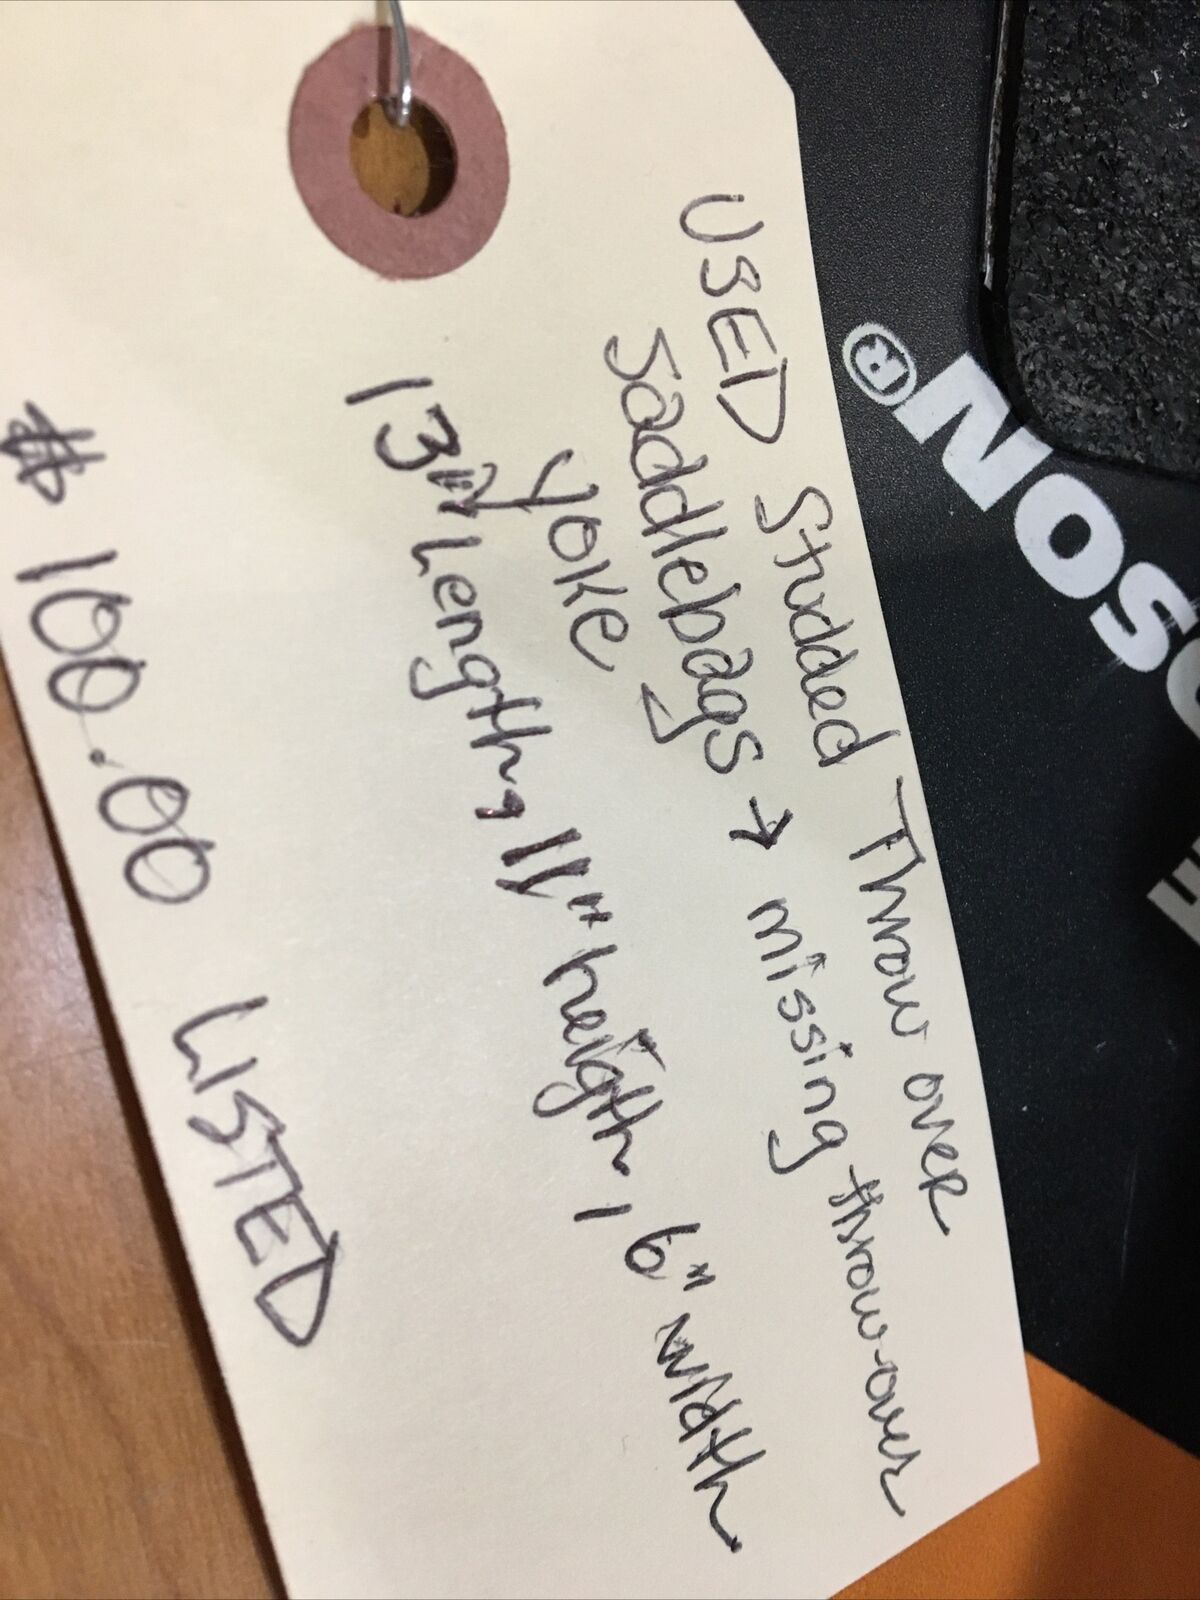 USED Studded Throw over
Saddlebags → missing throw-over
yoke
13" Length, 11" heigth, 6" width
$ 100.00 LISTED
SON®